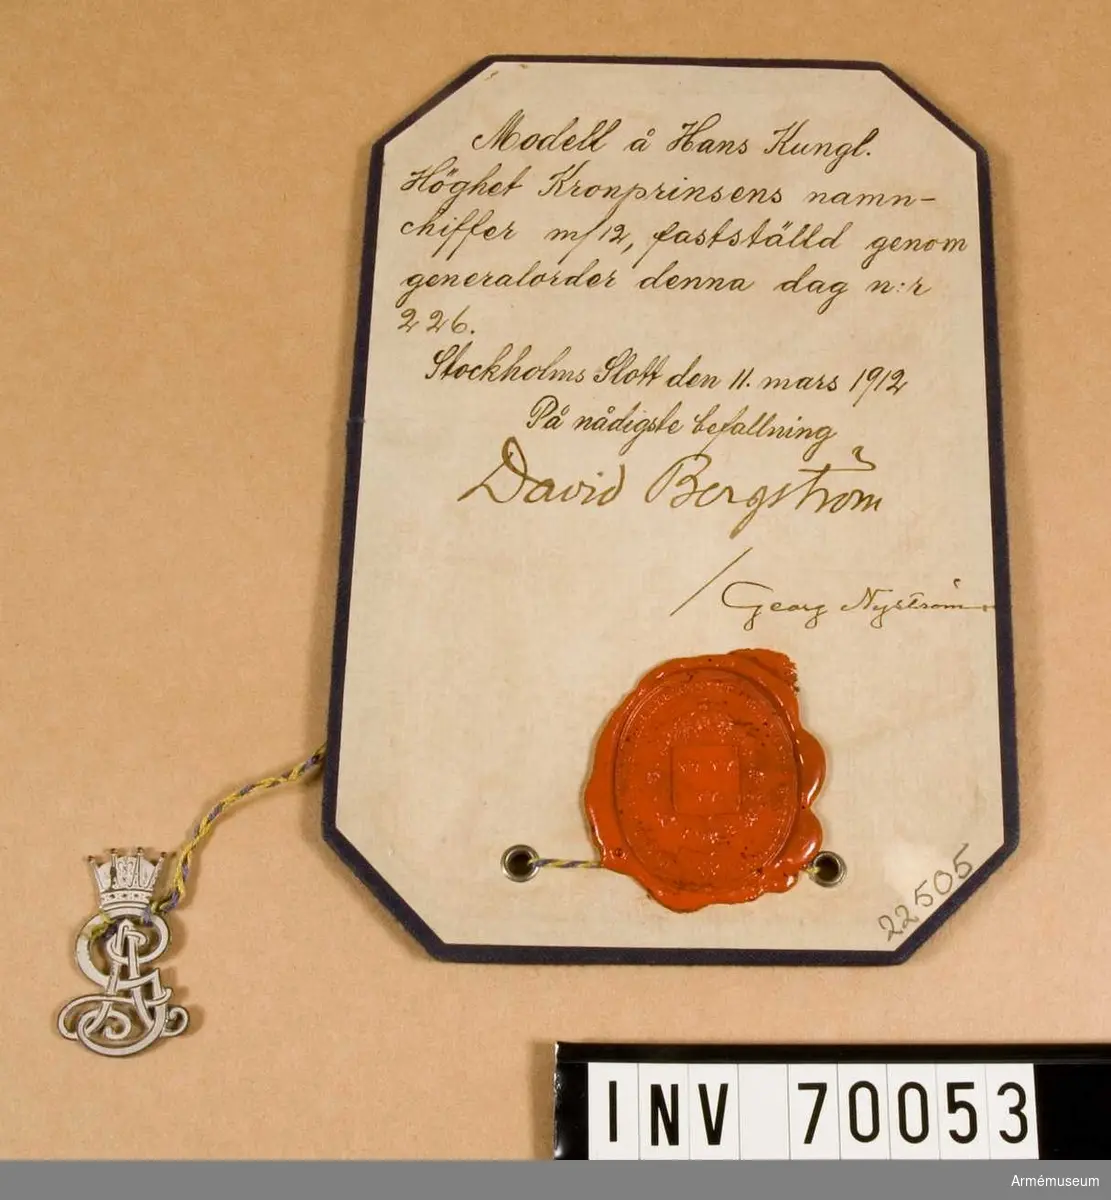 Modell å Hans Kungl.
Höghet Kronprinsens namn-
chiffer m/12, fastställd genom
generalorder denna dag n:r
226.
Stockholms Slott den 11. mars 1912
På nådigste befallning
David Bergström
/Georg Nyström
22505
INV 70053
Armémuseum